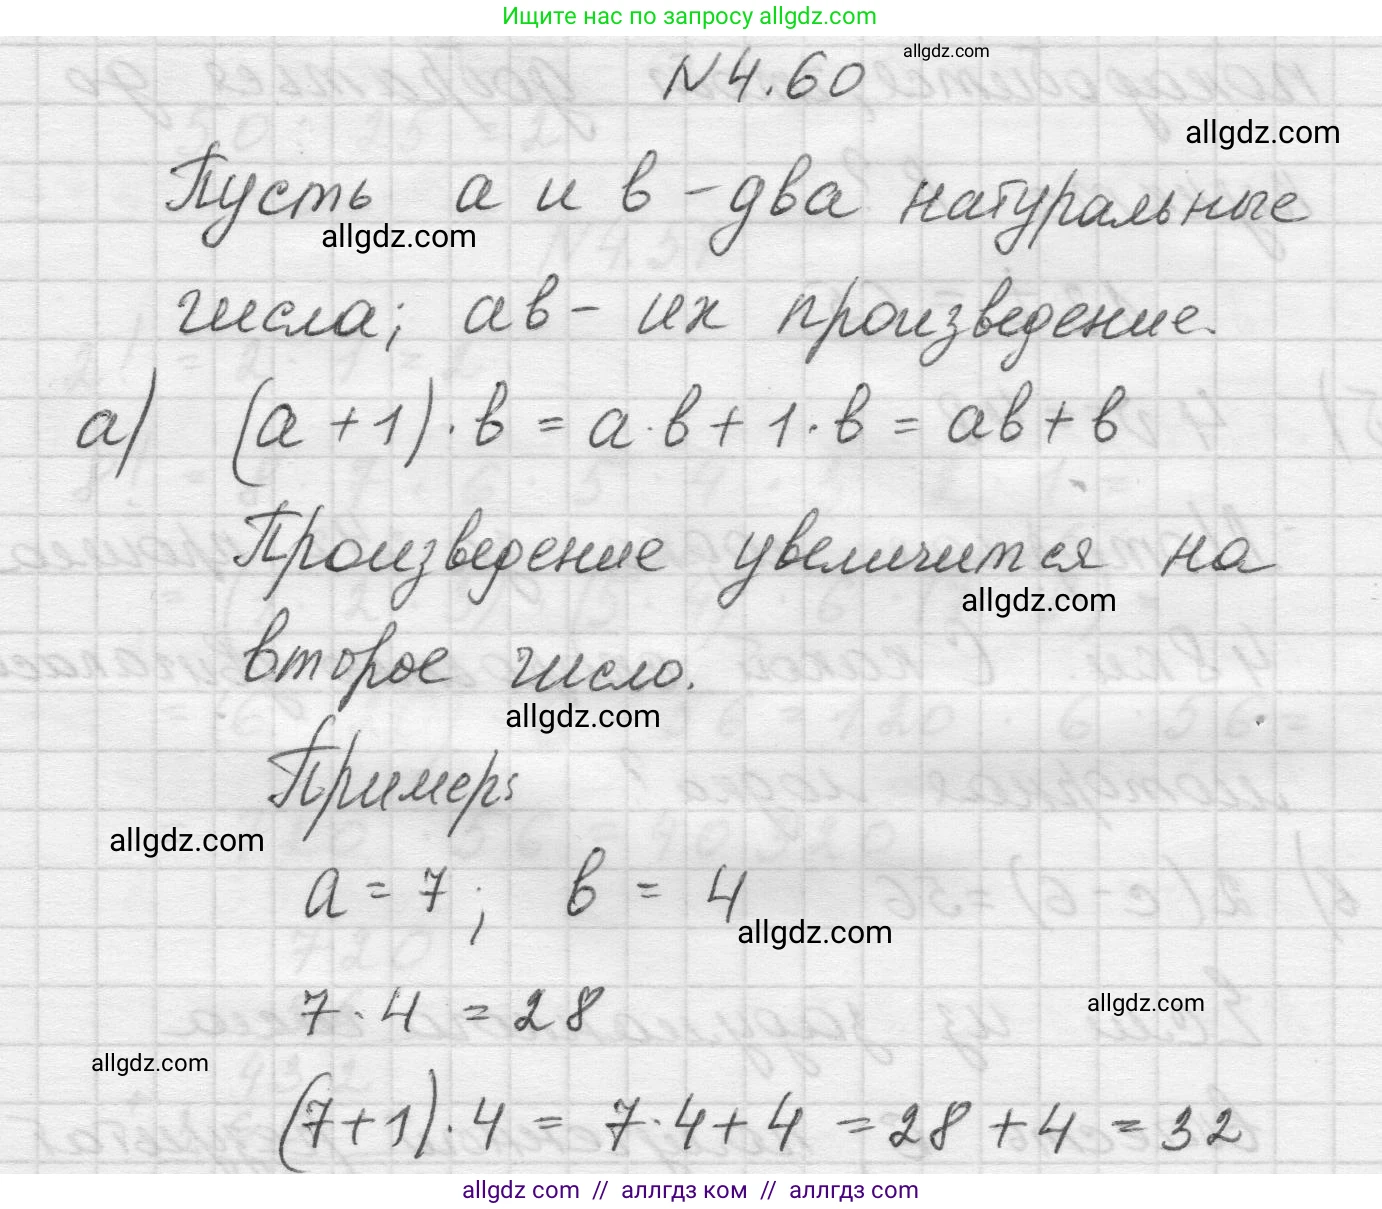 Ищите нас по запросу allgdz.com
N4.60
allgdz.com
allgdz.com
Пусть a и b - два натуральные
allgdz.com
числа; ab - их произведение.
а) (a + 1) · b = a · b + 1 · b = ab + b
Произведение увеличится на
allgdz.com
второе число.
allgdz.com
Пример:
allgdz.com
a = 7; b = 4
allgdz.com
7 · 4 = 28
allgdz.com
allgdz.com
(7+1) · 4 = 7 · 4 + 4 = 28 + 4 = 32
allgdz.com // аллгдз ком // аллгдз.com